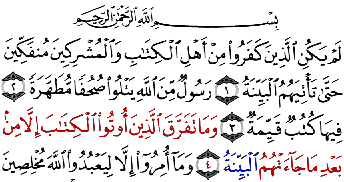 بِسْمِ اللَّهِ الرَّحْمَٰنِ الرَّحِيمِ
لَمْ يَكُنِ الَّذِينَ كَفَرُوا مِنْ أَهْلِ الْكِتَابِ وَالْمُشْرِكِينَ مُنفَكِّينَ
حَتَّىٰ تَأْتِيَهُمُ الْبَيِّنَةُ ١ رَسُولٌ مِّنَ اللَّهِ يَتْلُوا صُحُفًا مُّطَهَّرَةً ٢
فِيهَا كُتُبٌ قَيِّمَةٌ ٣ وَمَا تَفَرَّقَ الَّذِينَ أُوتُوا الْكِتَابَ إِلَّا مِنْ
بَعْدِ مَا جَاءَتْهُمُ الْبَيِّنَةُ ٤ وَمَا أُمِرُوا إِلَّا لِيَعْبُدُوا اللَّهَ مُخْلِصِينَ